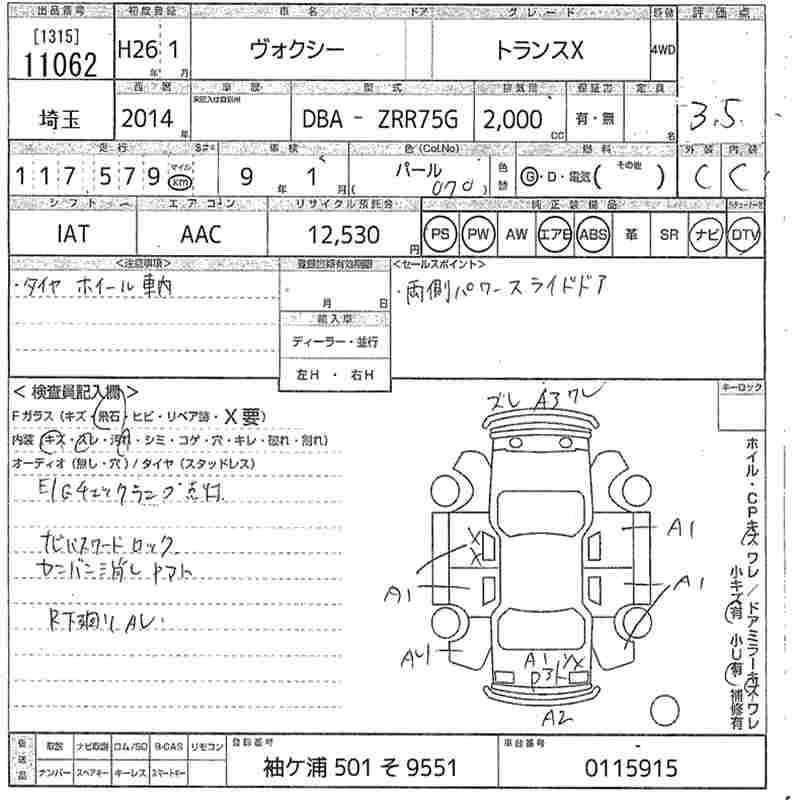 出品番号 初度登録 車名 ドア グレード 評価点
[1315]
11062 H26 1 ヴォクシー トランスX 4WD
年 月
車歴 型式 排気量 保証書 定員
未記入は自家用
埼玉 2014 年 DBA - ZRR75G 2,000 CC 有・無 名 3.5
走行 車検 色(Col.No) 燃料 外装 内装
117,579 マイル km 9 年 1 月 パール ( 070 ) 色替 G・D・電気( その他 ) C C
シフト エアコン リサイクル預託金 純正装備品
IAT AAC 12,530 円 PS PW AW エアB ABS 革 SR ナビ DTV
<注意事項> 登録書類有効期限 <セールスポイント>
・タイヤ ホイール 車内 ・両側パワースライドドア
月 日
輸入車
ディーラー・並行
左H ・ 右H
< 検査員記入欄 > キーロック
Fガラス (キズ・飛石・ヒビ・リペア跡・X要)
内装 (キズ・スレ・汚れ・シミ・コゲ・穴・キレ・破れ・割れ)
オーディオ (無し・穴) / タイヤ (スタッドレス)
E/Gチェックランプ点灯
ナビパスワードロック
カンバン消し Pアト
R下廻り AU
ズレ A3 ワレ
X
X
A1
A1
A1
A1
AU
A1 YX
Pアト
A2
ホイル・CPキズ ワレ / ドアミラーキズ ワレ
小キズ有 小U有 補修有
後送品 取説 ナビ取説 ロム/SD B-CAS リモコン 登録番号 車台番号
ナンバー スペアキー キーレス スマートキー 袖ケ浦 501 そ 9551 0115915